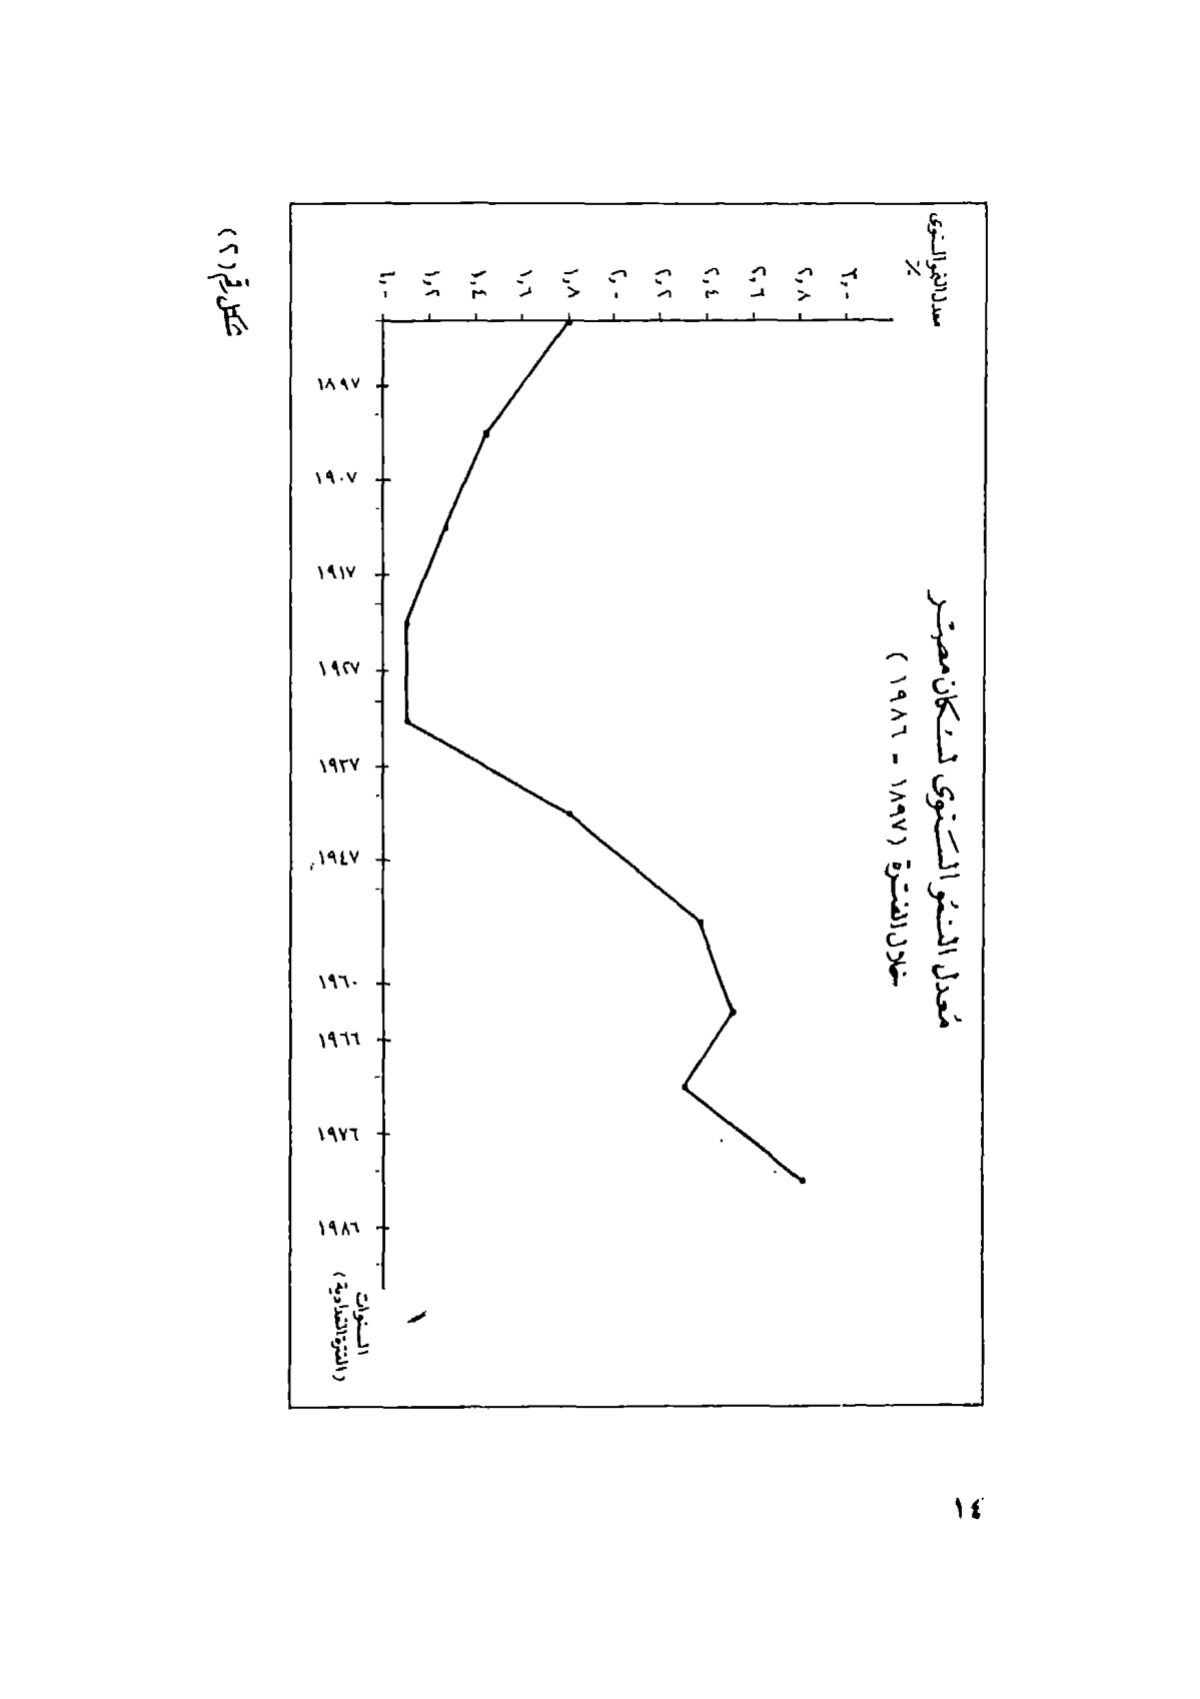 معدل النمو السنوى لسكان مصر
خلال الفترة (١٨٩٧ - ١٩٨٦)
معدل النمو السنوى
٪
٣,٠
٢,٨
٢,٦
٢,٤
٢,٢
٢,٠
١,٨
١,٦
١,٤
١,٢
١,٠
١٨٩٧
١٩٠٧
١٩١٧
١٩٢٧
١٩٣٧
١٩٤٧
١٩٦٠
١٩٦٦
١٩٧٦
١٩٨٦
السنوات
(الفترة التعدادية)
شكل رقم (٢)